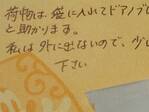 荷物は袋に入れてドアノブ
と助かります。
私は外に出ないので、少し
下さい